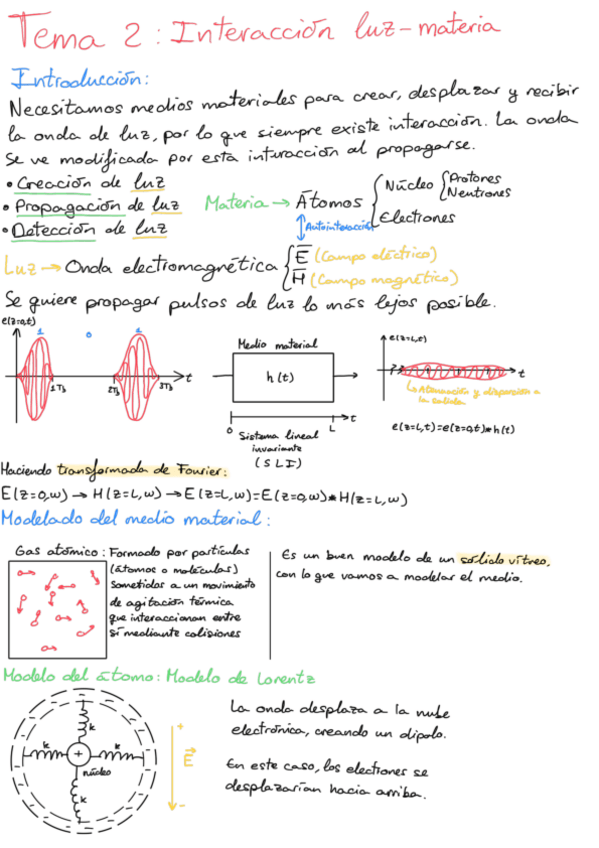 Tema 2: Interacción luz-materia
Introducción:
Necesitamos medios materiales para crear, desplazar y recibir
la onda de luz, por lo que siempre existe interacción. La onda
se ve modificada por esta interacción al propagarse.
• Creación de luz
• Propagación de luz
• Detección de luz
Materia → Átomos
Núcleo
Protones
Neutrones
Electrones
Autointeracción
Luz → Onda electromagnética
E (Campo eléctrico)
H (Campo magnético)
Se quiere propagar pulsos de luz lo más lejos posible.
e(z=0,t)
1
0
1
1Tb
2Tb
3Tb
t
Medio material
h(t)
0
L
t
Sistema lineal
invariante
(SLI)
e(z=L,t)
??
t
Atenuación y dispersión a
la salida
e(z=L,t)=e(z=0,t)*h(t)
Haciendo transformada de Fourier:
E(z=0,w) → H(z=L,w) → E(z=L,w)=E(z=0,w)*H(z=L,w)
Modelado del medio material:
Gas atómico: Formado por partículas
(átomos o moléculas)
sometidas a un movimiento
de agitación térmica
que interaccionan entre
sí mediante colisiones
Es un buen modelo de un sólido vítreo,
con lo que vamos a modelar el medio.
Modelo del átomo: Modelo de Lorentz
k
k
k
k
+
núcleo
+
E
-
La onda desplaza a la nube
electrónica, creando un dipolo.
En este caso, los electrones se
desplazarían hacia arriba.